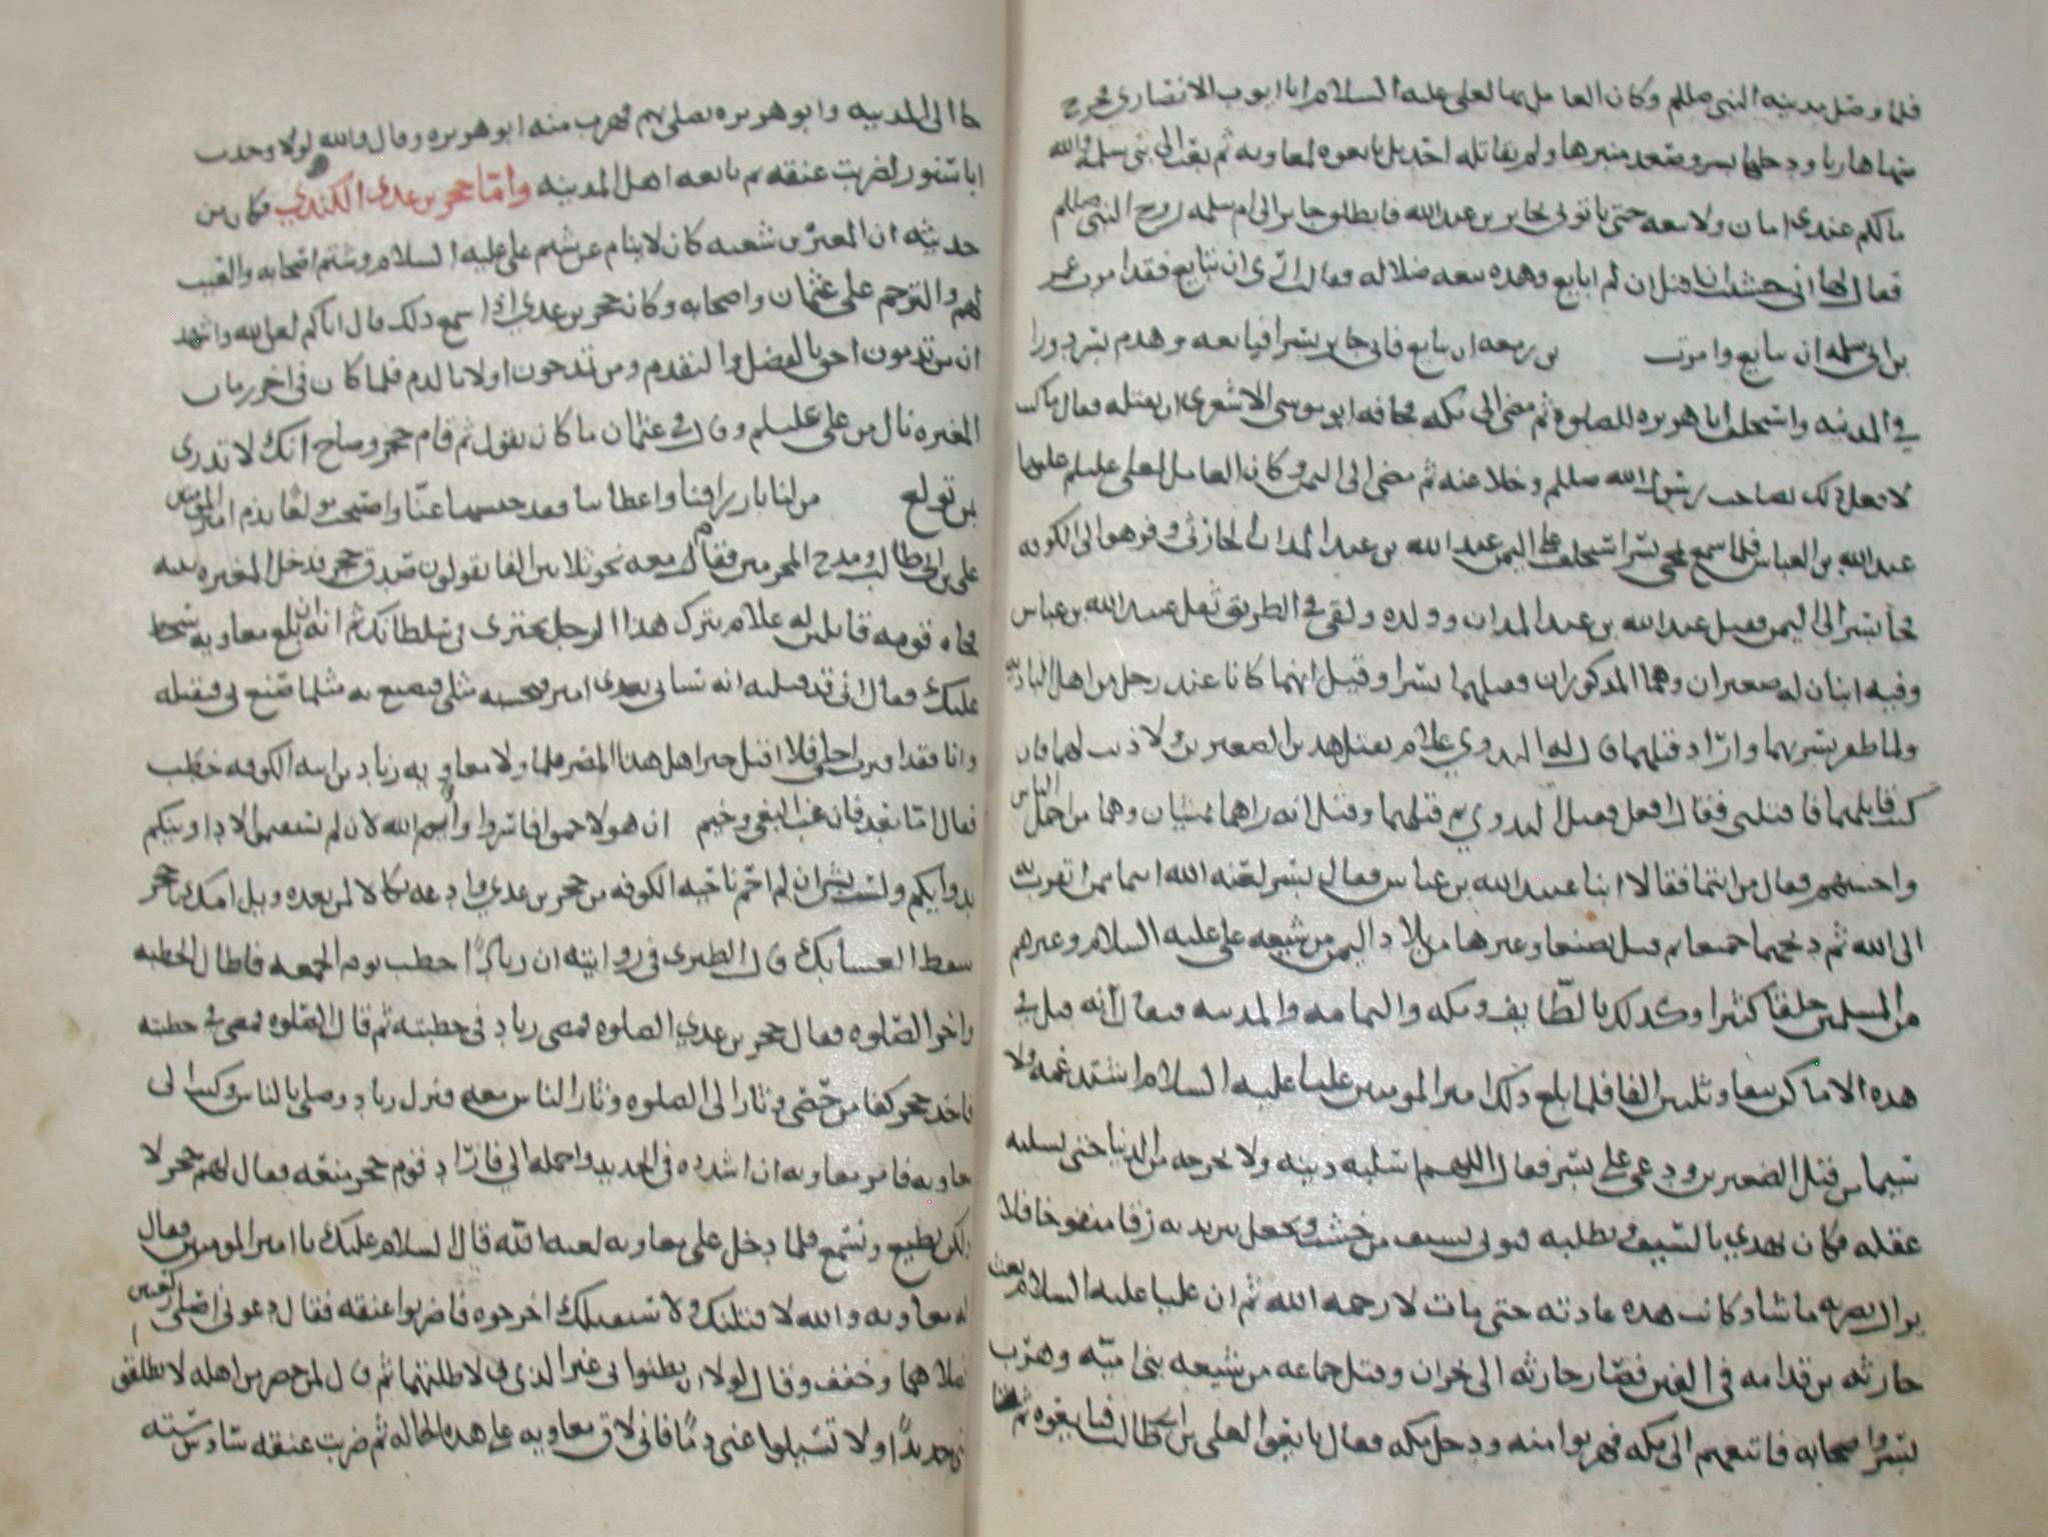 فلما وصل مدينه النبي صللم وكان العامل بها لعلي عليه السلام ابا ايوب الانصاري فخرج
منها هاربا ودخلها بسر وصعد منبرها ولم يقاتله احد بل بايعوه لمعاويه ثم بعث الى بني سلمه والله
مالكم عندي امان ولا بيعه حتى تاتوني بجابر بن عبد الله فانطلق جابر الى ام سلمه زوج النبي صللم
فقال لها اني خشيت ان اقتل ان لم ابايع وهذه بيعه ضلاله فقالت ارى ان تبايع فقد امرت عمر
بن ابي سلمه ان يبايع وامرت بن زمعه ان يبايع فاتى جابر بسرا فبايعه وهدم بسر دورا
في المدينه واستخلف ابا هريره للصلوة ثم مضى الى مكه فخافه ابو موسى الاشعري ان يقتله فقال ما كنت
لافعل ذلك بصاحب رسول الله صللم وخلا عنه ثم مضى الى اليمن وكان العامل لعلي عليلم عليها
عبيد الله بن العباس فلما سمع بمجي بسر استخلف على اليمن عبد الله بن عبد المدان الحارثي وفر هو الى الكوفه
فجا بسر الى اليمن فقتل عبد الله بن عبد المدان وولده ولقي في الطريق ثقل عبيد الله بن عباس
وفيه ابنان له صغيران وهما المذكوران فقتلهما بسر وقيل انهما كانا عند رجل من اهل الباديه
ولما ظفر بسر بهما واراد قتلهما قال له البدوي علام تقتل هذين الصغيرين ولا ذنب لهما فان
كنت قاتلهما فاقتلني فقال افعل فقتل البدوي ثم قتلهما وقيل انه راهما يمشيان وهما من اجمل الناس
واحسنهم فقال من انتما فقالا ابنا عبيد الله بن عباس فقال بسر لعنه الله انتما ممن اتقرب به
الى الله ثم ذبحهما جميعا ثم قتل بصنعا وغيرها من بلاد اليمن من شيعه علي عليه السلام وغيرهم
من المسلمين خلقا كثيرا وكذلك بالطايف ومكه واليمامه والمدينه فيقال انه قتل في
هذه الاماكن نيفا وثلثين الفا فلما بلغ ذلك امير المومنين عليا عليه السلام اشتد غمه ولا
سيما من قتل الصغيرين ودعى على بسر فقال اللهم اسلبه دينه ولا تخرجه من الدنيا حتى تسلبه
عقله فكان يهذي بالسيف ويطلبه فيوتى بسيف من خشب ويجعل بين يديه زقا منفوخا فلا
يزال يضربه ما شا وكانت هذه عادته حتى مات لا رحمه الله ثم ان عليا عليه السلام بعث
حارثه بن قدامه في الفين فصار حارثه الى نجران وقتل جماعه من شيعه بني اميه وهرب
بسر واصحابه فاتبعهم الى مكه فهربوا منه ودخل مكه فقال بايعوا لعلي بن ابي طالب فبايعوه ثم
جا الى المدينه وابو هريره يصلي بهم فهرب منه ابو هريره وقال والله لولا وجدت
ابا سنور لضربت عنقه ثم بايعه اهل المدينه واما حجر بن عدي الكندي فكان من
حديثه ان المغيره بن شعبه كان لا ينام عن شتم علي عليه السلام وشتم اصحابه والعيب
لهم والترحم على عثمان واصحابه وكان حجر بن عدي اذا سمع ذلك قال اياكم لعن الله واشهد
ان من تذمون احق بالفضل والتقدم ومن تمدحون اولا بالذم فلما كان في اخر زمان
المغيره نال من علي عليلم وقال في عثمان ما كان يقول ثم قام حجر وصاح انك لا تدري
بمن تولع مر لنا بارزاقنا واعطياتنا فقد حبستها عنا واصبحت مولعا بذم امير المومنين
علي بن ابي طالب ومدح المجرمين فقام معه نحو ثلاثين الفا يقولون صدق حجر فدخل المغيره بيته
فجاه قومه قايلين له علام تترك هذا الرجل يجتري في سلطانك ثم انه ان بلغ معاويه سخط
عليك فقال اني قد قتلته انه سياتي بعدي امير يحسبه مثلي فيصنع به مثلما صنع بي فيقتله
وانا فقد اقترب اجلي فلا اقتل خير اهل هذا المصر فلما ولا معاويه زياد بن ابيه الكوفه خطب
فقال اما بعد فان غب البغي وخيم ان هولا جموا فاشروا وايم الله لان لم تستقيموا لاداوينكم
بدوايكم ولست بشي ان لم احم ناحيه الكوفه من حجر بن عدي وادعه نكالا لمن بعده ويل امك يا حجر
سقط العشا بك قال الطبري في روايته ان زيادا خطب يوم الجمعه فاطال الخطبه
واخر الصلوه فقال حجر بن عدي الصلوه فمضى زياد في خطبته ثم قال الصلوه فمضى في خطبته
فاخذ حجر كفا من حصى وثار الى الصلوه وثار الناس معه فنزل زياد وصلى بالناس وكتب الى
معاويه فامر معاويه ان اشدده في الحديد واحمله الي فاراد قوم حجر منعه فقال لهم حجر لا
ولكن نطيع ونسمع فلما دخل على معاويه لعنه الله قال السلام عليك يا امير المومنين فقال
له معاويه والله لا قتلنك ولا استقيلك اخرجوه فاضربوا عنقه فقال دعوني اصلي ركعتين
فصلاهما وخفف وقال لولا ان يظنوا بي غير الذي بي لاطلتهما ثم قال لمن حضر من اهله لا تطلقوا
عني حديدا ولا تغسلوا عني دما فاني لاق معاويه على هذه الحاله ثم ضربت عنقه سادس سته